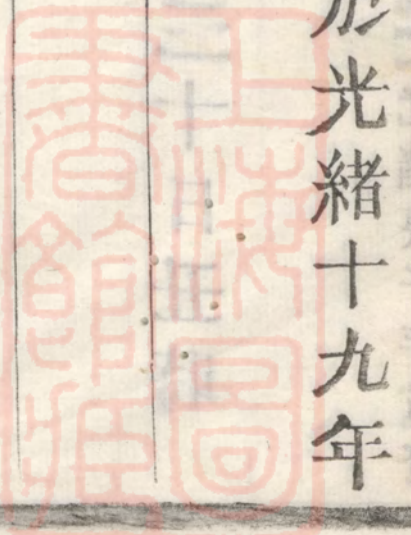 光緒十九年
上海圖
書館藏